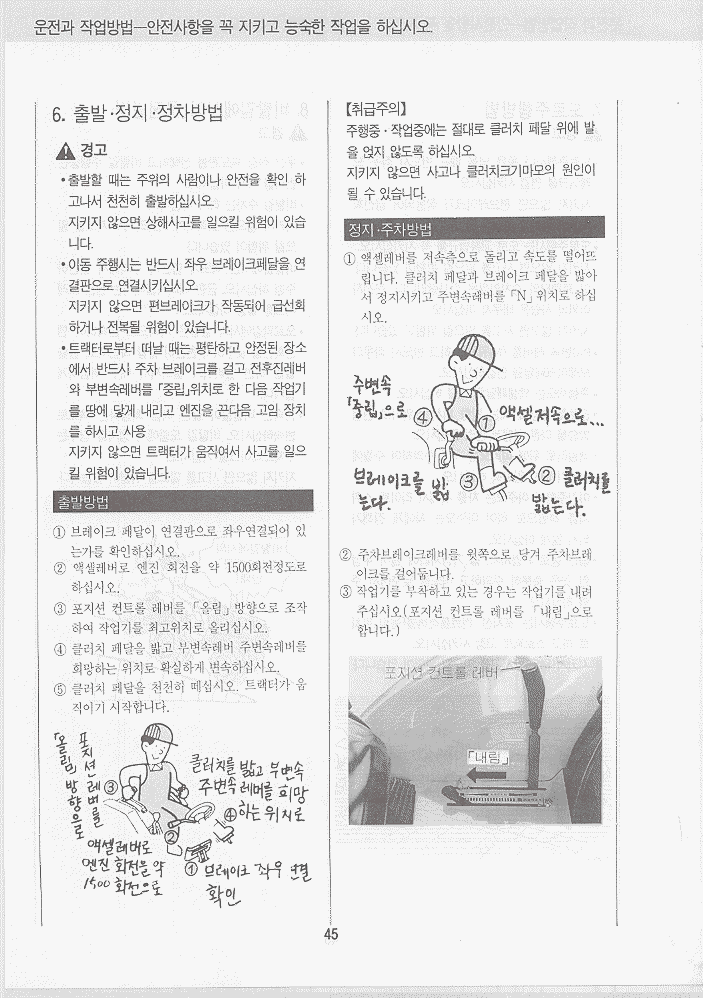 운전과 작업방법-안전사항을 꼭 지키고 능숙한 작업을 하십시오.
6. 출발·정지·정차방법
경고
•출발할 때는 주위의 사람이나 안전을 확인 하
고나서 천천히 출발하십시오.
지키지 않으면 상해사고를 일으킬 위험이 있습
니다.
•이동 주행시는 반드시 좌우 브레이크페달을 연
결판으로 연결시키십시오.
지키지 않으면 편브레이크가 작동되어 급선회
하거나 전복될 위험이 있습니다.
•트랙터로부터 떠날 때는 평탄하고 안정된 장소
에서 반드시 주차 브레이크를 걸고 전후진레버
와 부변속레버를 「중립」위치로 한 다음 작업기
를 땅에 닿게 내리고 엔진을 끈다음 고임 장치
를 하시고 사용
지키지 않으면 트랙터가 움직여서 사고를 일으
킬 위험이 있습니다.
출발방법
① 브레이크 페달이 연결판으로 좌우연결되어 있
는가를 확인하십시오.
② 액셀레버로 엔진 회전을 약 1500회전정도로
하십시오.
③ 포지션 컨트롤 레버를 「올림」방향으로 조작
하여 작업기를 최고위치로 올리십시오.
④ 클러치 페달을 밟고 부변속레버 주변속레버를
희망하는 위치로 확실하게 변속하십시오.
⑤ 클러치 페달을 천천히 떼십시오. 트랙터가 움
직이기 시작합니다.
포지션 레버를
「올림」방향으로
③
클러치를 밟고 부변속
주변속 레버를 희망
④ 하는 위치로
②
액셀레버로
엔진 회전을 약
1500 회전으로
① 브레이크 좌우 연결
확인
【취급주의】
주행중·작업중에는 절대로 클러치 페달 위에 발
을 얹지 않도록 하십시오.
지키지 않으면 사고나 클러치크기마모의 원인이
될 수 있습니다.
정지·주차방법
① 액셀레버를 저속측으로 돌리고 속도를 떨어뜨
립니다. 클러치 페달과 브레이크 페달을 밟아
서 정지시키고 주변속레버를 「N」위치로 하십
시오.
주변속
「중립」으로 ④
① 액셀 저속으로...
브레이크를 밟
는다.
③
② 클러치를
밟는다.
② 주차브레이크레버를 윗쪽으로 당겨 주차브레
이크를 걸어둡니다.
③ 작업기를 부착하고 있는 경우는 작업기를 내려
주십시오(포지션 컨트롤 레버를 「내림」으로
합니다.)
포지션 컨트롤 레버
「내림」
45